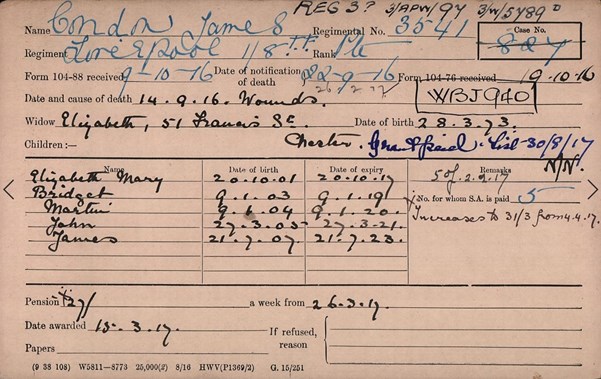 REG 3? 3/APW/97 3/W/5789 D
Name Condon James Regimental No. 3541 Case No. 827
Regiment Liverpool 1/8 TH Rank Pte
Form 104-88 received 9-10-16 Date of notification of death 22-9-16 Form 104-76 received 19.10.16
26.2.17 WBJ940
Date and cause of death 14.9.16. Wounds.
Widow Elizabeth, 51 Francis St. Date of birth 28.3.73.
Children:— Chester. Grant paid. List 30/8/17
N/N.
Name Date of birth Date of expiry Remarks
Elizabeth Mary 20.10.01 20.10.17 5/ of 2.9.17
Bridget 9.1.03 9.1.19 No. for whom S.A. is paid 5
Martin 9.6.04 9.1.20. Increases to 31/3 from 4.4.17.
John 27.3.05 27.3.21.
James 21.7.07. 21.7.23.
Pension 27/ a week from 26.3.17.
Date awarded 15.3.17. If refused, reason
Papers
(9 38 108) W5811—8773 25,000(2) 8/16 HWV(P1369/2) G. 15/251